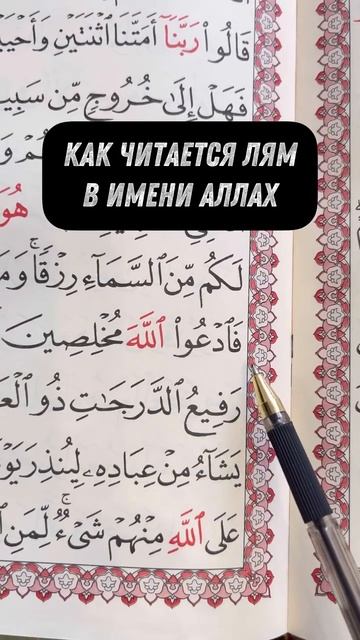 قَالُوا۟ رَبَّنَآ أَمَتَّنَا ٱثْنَتَيْنِ
فَهَلْ إِلَىٰ خُرُوجٍ مِّن
КАК ЧИТАЕТСЯ ЛЯМ
В ИМЕНИ АЛЛАХ
لَكُم مِّنَ ٱلسَّمَآءِ رِزْقًا ۚ
فَٱدْعُوا۟ ٱللَّهَ مُخْلِصِينَ
رَفِيعُ ٱلدَّرَجَٰتِ ذُو
يَشَآءُ مِنْ عِبَادِهِۦ لِيُنذِرَ
عَلَى ٱللَّهِ مِنْهُمْ شَىْءٌ ۚ لِّمَنِ